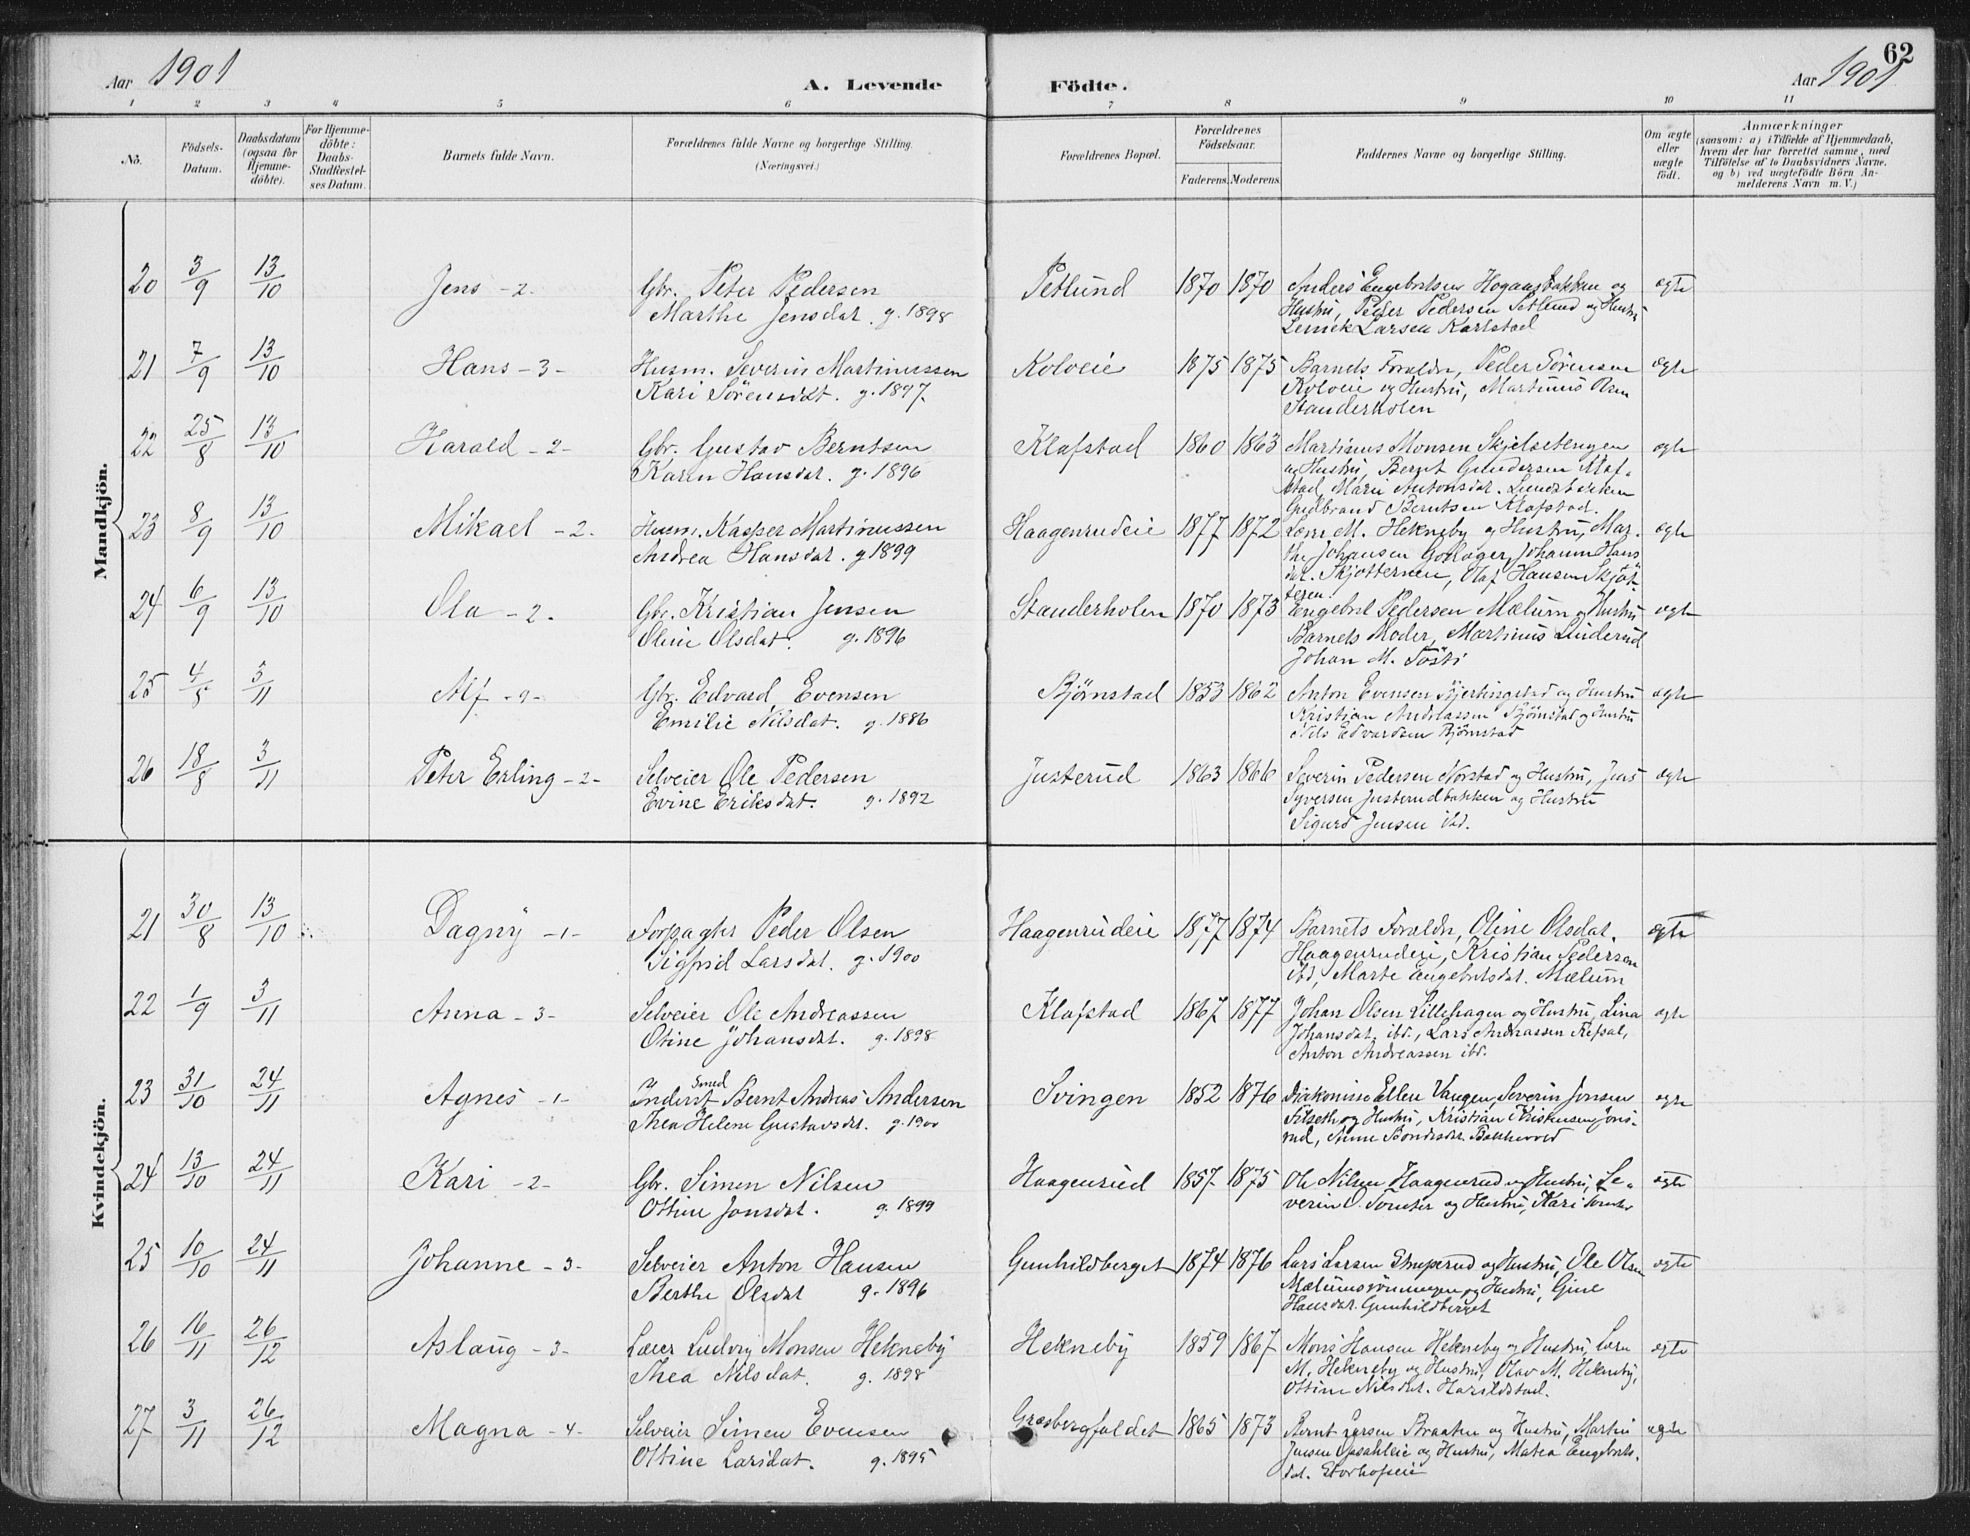 62
Aar 1901
A. Levende
Födte.
Aar 1901
1 2 3 4 5 6 7 8 9 10 11
No.
Födsels-
Datum.
Daabsdatum
(ogsaa for
Hjemme-
döbte).
For Hjemme-
döbte:
Daabs-
Stadfæstel-
ses Datum.
Barnets fulde Navn.
Forældrenes fulde Navne og borgerlige Stilling.
(Næringsvei.)
Forældrenes Bopæl.
Forældrenes
Födselsaar.
Faderens.
Moderens.
Faddernes Navne og borgerlige Stilling.
Om ægte
eller
uægte
födt.
Anmærkninger
(saasom: a) i Tilfælde af Hjemmedaab,
hvem der har forrettet samme, med
Tilföielse af to Daabsvidners Navne,
og b) ved uægtefödte Börn An-
melderens Navn m. V.)
Mandkjön.
20 3/9 13/10 Jens - 2 - Gbr. Peter Pedersen Petlund 1870 1870 Anders Engebretsen Hogaasbakken og ægte
Marthe Jensdat. g. 1898 Hustru, Peder Pedersen Petlund og Hustru
Larsen Karlstad
21 7/9 13/10 Hans - 3 - Husm. Severin Martinussen Kolveie 1875 1875 Barnets Forældre, Peder Sörensen ægte
Kari Sörensdat. g. 1897. Kolveie og Hustru, Martinus Olsen
Standerholen
22 25/8 13/10 Harald - 2 - Gbr. Gustav Berntsen Klafstad 1860 1863 Martinus Monsen Skjelsetengen ægte
Karen Hansdat. g. 1896 og Hustru, Berget Gundersen Klaf-
stad, Marie Antonsdat. Lundsbakken
Gudbrand Berntsen Klafstad.
23 8/9 13/10 Mikael - 2. Husm. Kasper Martinussen Haagenrudeie 1877 1872 Lars M. Hekneby og Hustru, Mar- ægte
Andrea Hansdat. g 1899 the Johansen Johanne Hans
dat. Skjötternen, Olaf Hansen Skjöt-
teren.
24 6/9 13/10 Ola - 2. Gbr. Kristian Jensen Standerholen 1870 1873 Engebret Pedersen Mælum og Hustru ægte
Oline Olsdat. g. 1896 Barnets Moder, Martinus Linderud
Johan M. Tösti
25 4/8 3/11 Alf - 9 - Gbr. Edvard Evensen Bjørnstad 1853 1862 Anton Evensen Hjertingstad og Hustru ægte
Emilie Nilsdat. g. 1886 Kristian Andreassen Bjørnstad og Hustru
Nils Edvardsen Bjørnstad
26 18/8 3/11 Peter Erling - 2 - Selveier Ole Pedersen Justerud 1863 1866 Severin Pedersen Norstad og Hustru, Jens ægte
Evine Eriksdat. g. 1892 Syversen Justerudbakken og Hustru
Sigurd Jensen ibd.
Kvindekjön.
21 30/8 13/10 Dagny - 1 - Forpagter Peder Olsen Haagenrudeie 1877 1874 Barnets Forældre, Oline Olsdat. ægte
Sigfrid Larsdat. g. 1900 Haagenrudeie, Kristian Pedersen
ibd, Marte Engebretsdat. Mælum
22 1/9 3/11 Anna - 3 - Selveier Ole Andreassen Klafstad 1867 1877 Johan Olsen Lillehagen og Hustru, Lina ægte
Otine Johansdat. g. 1898 Johansdat. ibd., Lars Andreassen Refsal,
Anton Andreassen ibd.
23 31/10 24/11 Agnes - 1 - Inderst Smed Bernt Andreas Andersen Svingen 1852 1876 Diakonisse Ellen Vangen, Severin Jonsen ægte
Thea Helene Gustavsdat. g. 1900 og Hustru, Kristian Kristensen Jons-
rud, Anne
24 13/10 24/11 Kari - 2 - Gbr. Simen Nilsen Haagenrud 1857 1875 Ole Nilsen Haagenrud og Hustru, Se- ægte
Ottine Jonsdat. g. 1899 verin O. Tömter og Hustru, Kari Tömter
25 10/10 24/11 Johanne - 3 - Selveier Anton Hansen Gunhildberget 1874 1876 Lars Larsen Struperud og Hustru, Ole Olsen ægte
Berthe Olsdat g. 1896 Mælumsrönningen og Hustru, Gine
Hansdat. Gunhildberget
26 16/11 26/12 Aslaug - 3 - Lærer Ludvig Monsen Hekneby Hekneby 1859 1867 Mons Hansen Hekneby og Hustru, Lars ægte
Thea Nilsdat. g. 1898 M. Hekneby og Hustru, Olav M. Hekneby,
Ottine Nilsdat. Harildstad.
27 3/11 26/12 Magna - 4 - Selveier Simen Evensen Græsbergfaldet 1865 1873 Bernt Larsen Braaten og Hustru, Martin ægte
Ottine Larsdat. g. 1895 Jensen Opsahleie og Hustru, Matea Engebrets-
dat. Storhofseie